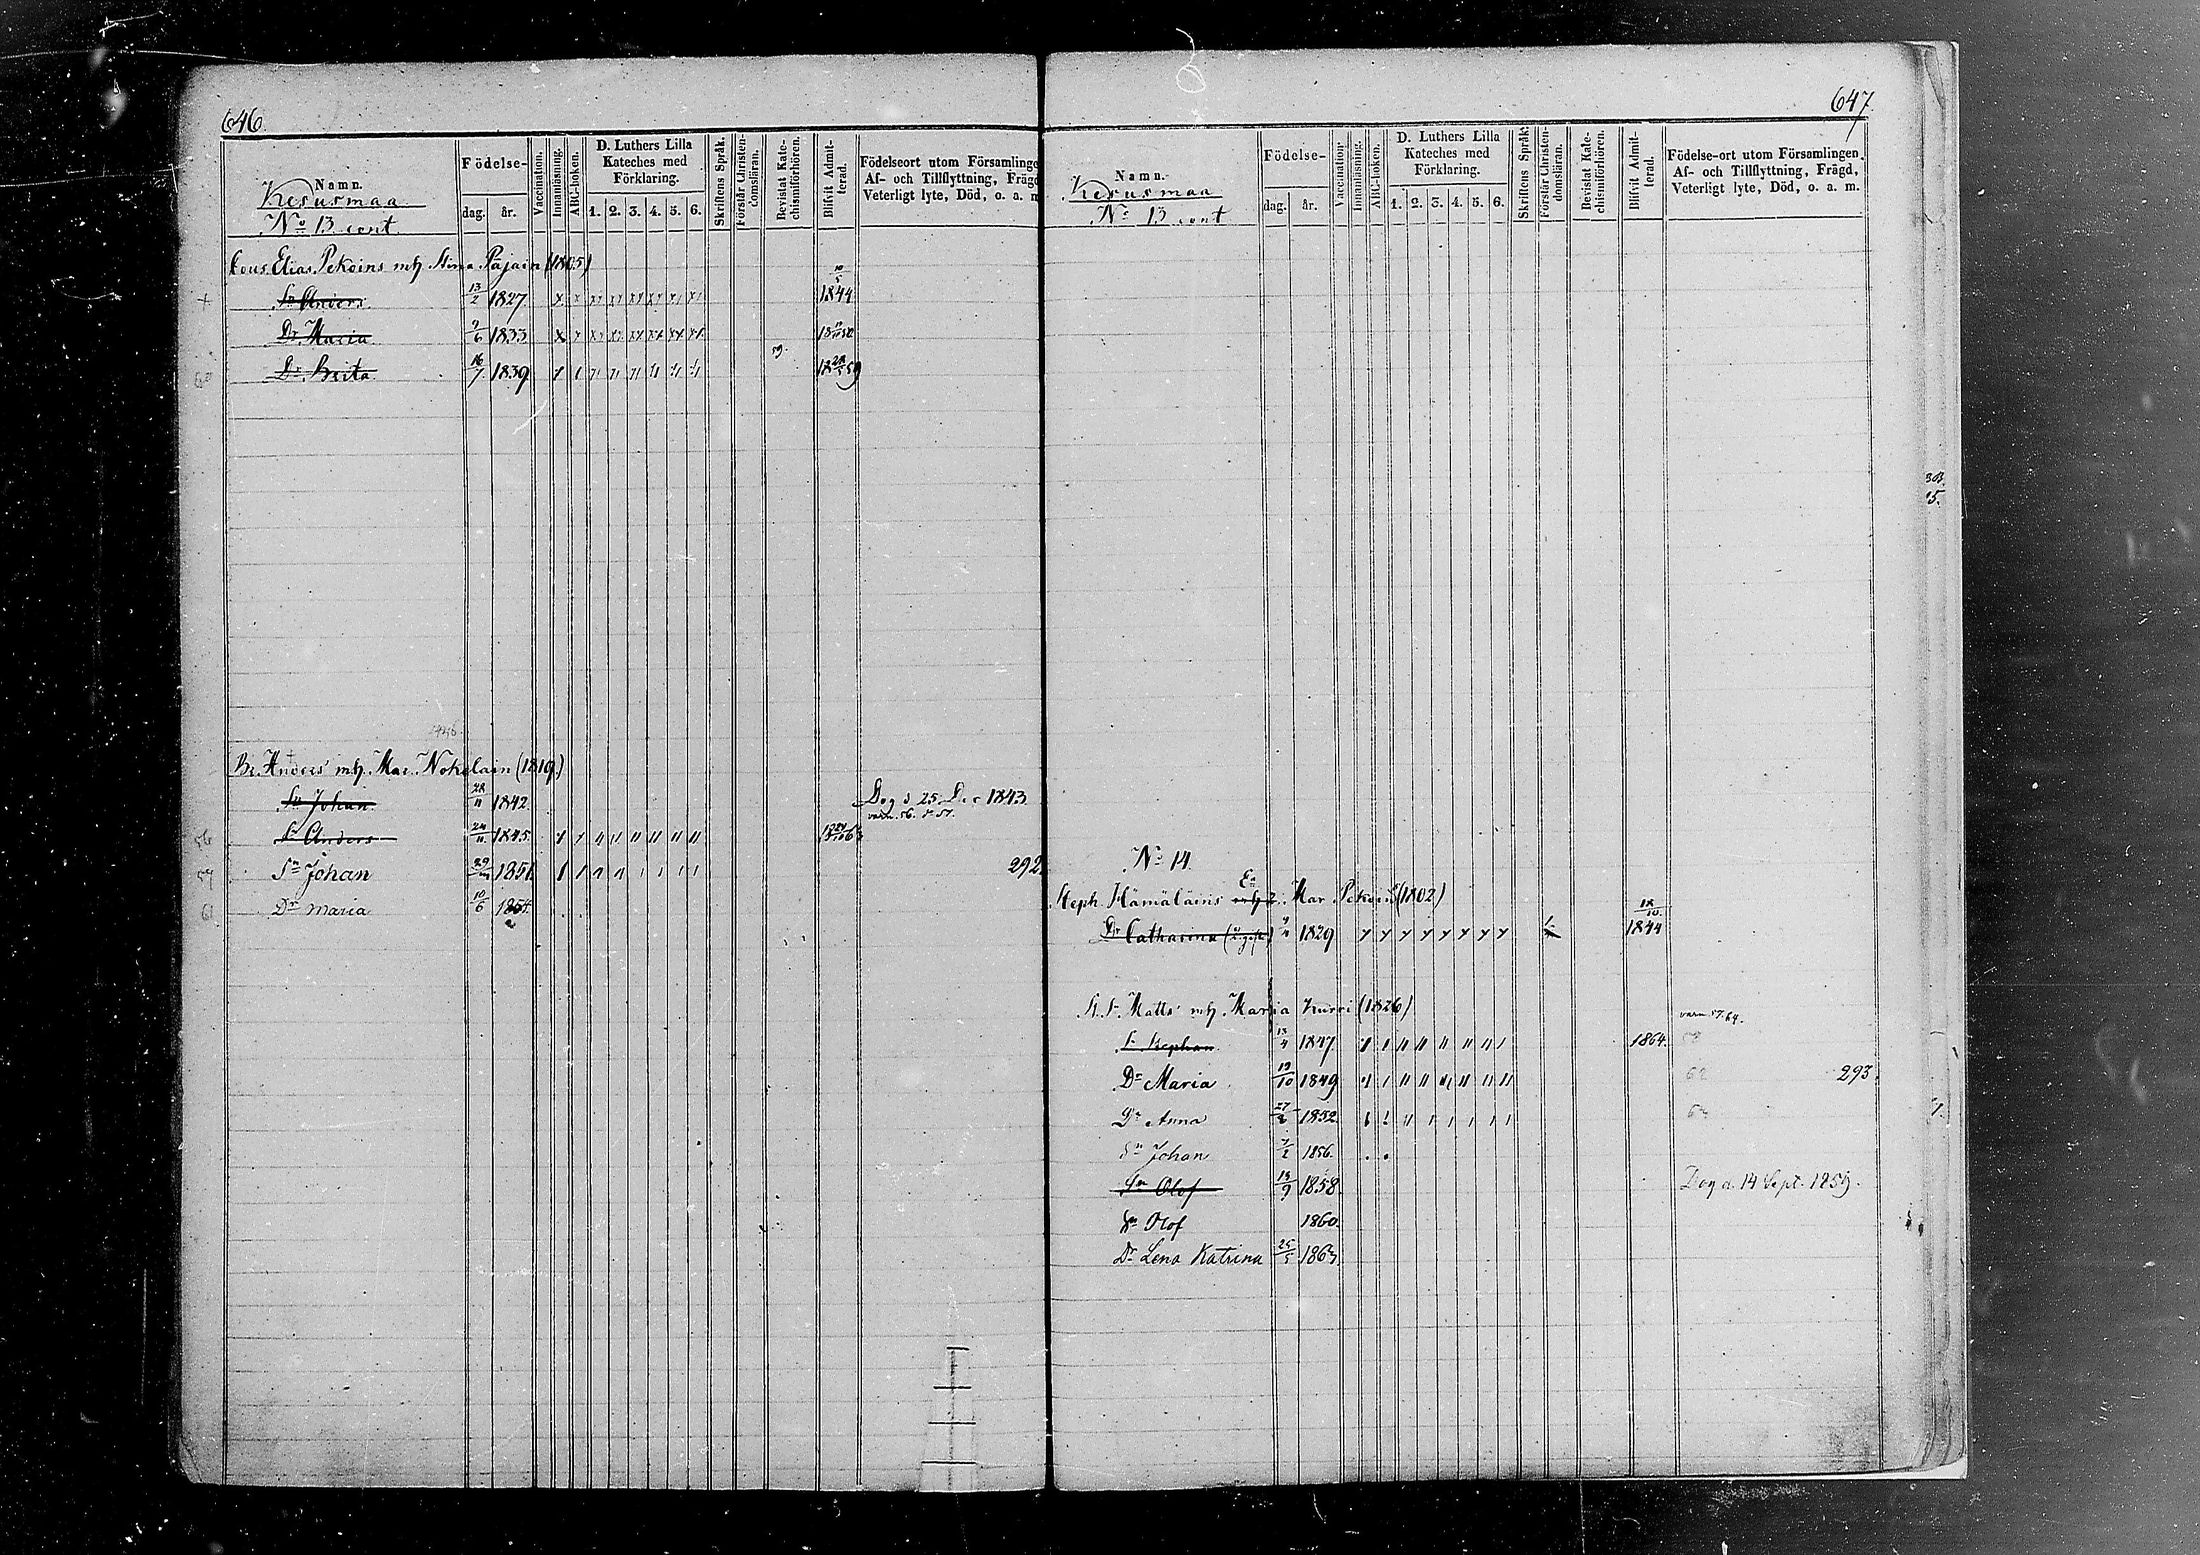 646.
Namn.
Kesusmaa
No 13 cont
Födelse-
dag.
år.
Vaccination.
Innanläsning.
ABC-boken.
D. Luthers Lilla
Kateches med
Förklaring.
1. 2. 3. 4. 5. 6.
Skriftens Språk.
Förstår Christen-
domsläran.
Bevistat Kate-
chismiförhören.
Blifvit Admit-
terad.
Födelseort utom Församlinge
Af- och Tillflyttning, Frägd
Veterligt lyte, Död, o. a. m
Elias Pekoins mh Stina Pajain (1805)
Sn Anders 13/2 1827 1844
Dr Maria 9/6 1833
Dr Brita 16/7 1839 59
Br. Anders' mh Mar. Nokelain (1819)
Sn Johan 28/11 1842 Dog d. 25 Dec 1843
Sn Anders 24/11 1845
Sn Johan 1851 292
Dr Maria 10/6 1854
647.
Namn.
Kesusmaa
No 13 cont
Födelse-
dag.
år.
Vaccination
Innanläsning.
ABC-boken.
D. Luthers Lilla
Kateches med
Förklaring.
1. 2. 3. 4. 5. 6.
Skriftens Språk.
Förstår Christen-
domsläran.
Bevistat Kate-
chismiförhören.
Blifvit Admit-
terad.
Födelse-ort utom Församlingen,
Af- och Tillflyttning, Frägd,
Veterligt lyte, Död, o. a. m.
No 14
Steph. Hämäläins Ea Mar Pekoin (1802)
Dr Catharina 1829 18/10 1844
Matts' mh Maria Kurri (1826)
Sn Stephan 13/4 1847 1864
Dr Maria 19/10 1849 62 293
Dr Anna 1852
Sn Johan 1856
Sn Olof 13/9 1858 Dog d. 14 Sept. 1859.
Sn Olof 1860
Dr Lena Katrina 25/5 1863